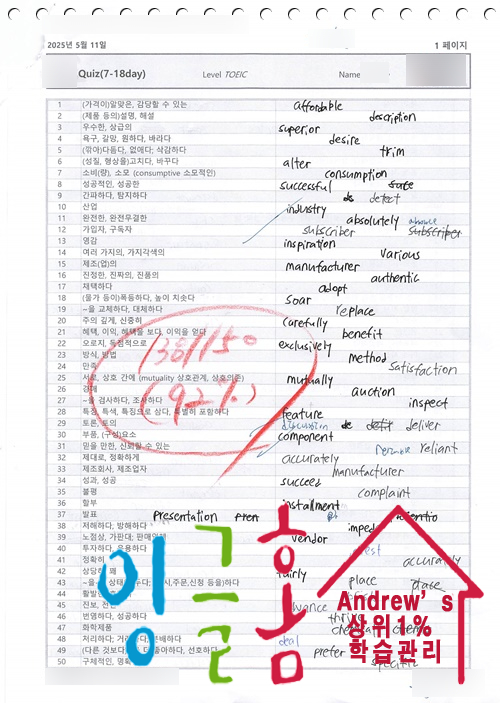 2025년 5월 11일 1 페이지
Quiz(7-18day) Level TOEIC Name
1 (가격이)알맞은, 감당할 수 있는 affordable
2 (제품 등의)설명, 해설 description
3 우수한, 상급의 superior
4 욕구, 갈망, 원하다, 바라다 desire
5 (깎아)다듬다, 없애다; 삭감하다 trim
6 (성질, 형상을)고치다, 바꾸다 alter
7 소비(량), 소모 (consumptive 소모적인) consumption
8 성공적인, 성공한 successful
9 간파하다, 탐지하다 detect
10 산업 industry
11 완전한, 완전무결한 absolutely
12 가입자, 구독자 subscriber subscriber
13 영감 inspiration
14 여러 가지의, 가지각색의 various
15 제조(업)의 manufacturer
16 진정한, 진짜의, 진품의 authentic
17 채택하다 adopt
18 (물가 등이)폭등하다, 높이 치솟다 soar
19 ~을 교체하다, 대체하다 replace
20 주의 깊게, 신중히 carefully
21 혜택, 이익, 혜택을 보다, 이익을 얻다 benefit
22 오로지, 독점적으로 exclusively
23 방식, 방법 method
24 만족 satisfaction
25 서로, 상호 간에 (mutuality 상호관계, 상호의존) mutually
26 경매 auction
27 ~을 검사하다, 조사하다 inspect
28 특징, 특색, 특징으로 삼다, 특별히 포함하다 feature
29 토론, 토의 discussion deliver
30 부품, (구성)요소 component
31 믿을 만한, 신뢰할 수 있는 reliant
32 제대로, 정확하게 accurately
33 제조회사, 제조업자 manufacturer
34 성과, 성공 succeed
35 불평 complaint
36 할부 installment
37 발표 presentation
38 저해하다, 방해하다
39 노점상, 가판대; vendor
40 투자하다,
41 정확히 accurately
42 상당히, 꽤 fairly
43 place date
44 활발한
45 진보,
46 번영하다, 성공하다 thrive
47 화학제품
48 처리하다; deal
49 (다른 것보다) 더 좋아하다, 선호하다 prefer
50 구체적인, 명확 specific
138/150
(92%)
잉글홈
Andrew's
상위1%
학습관리